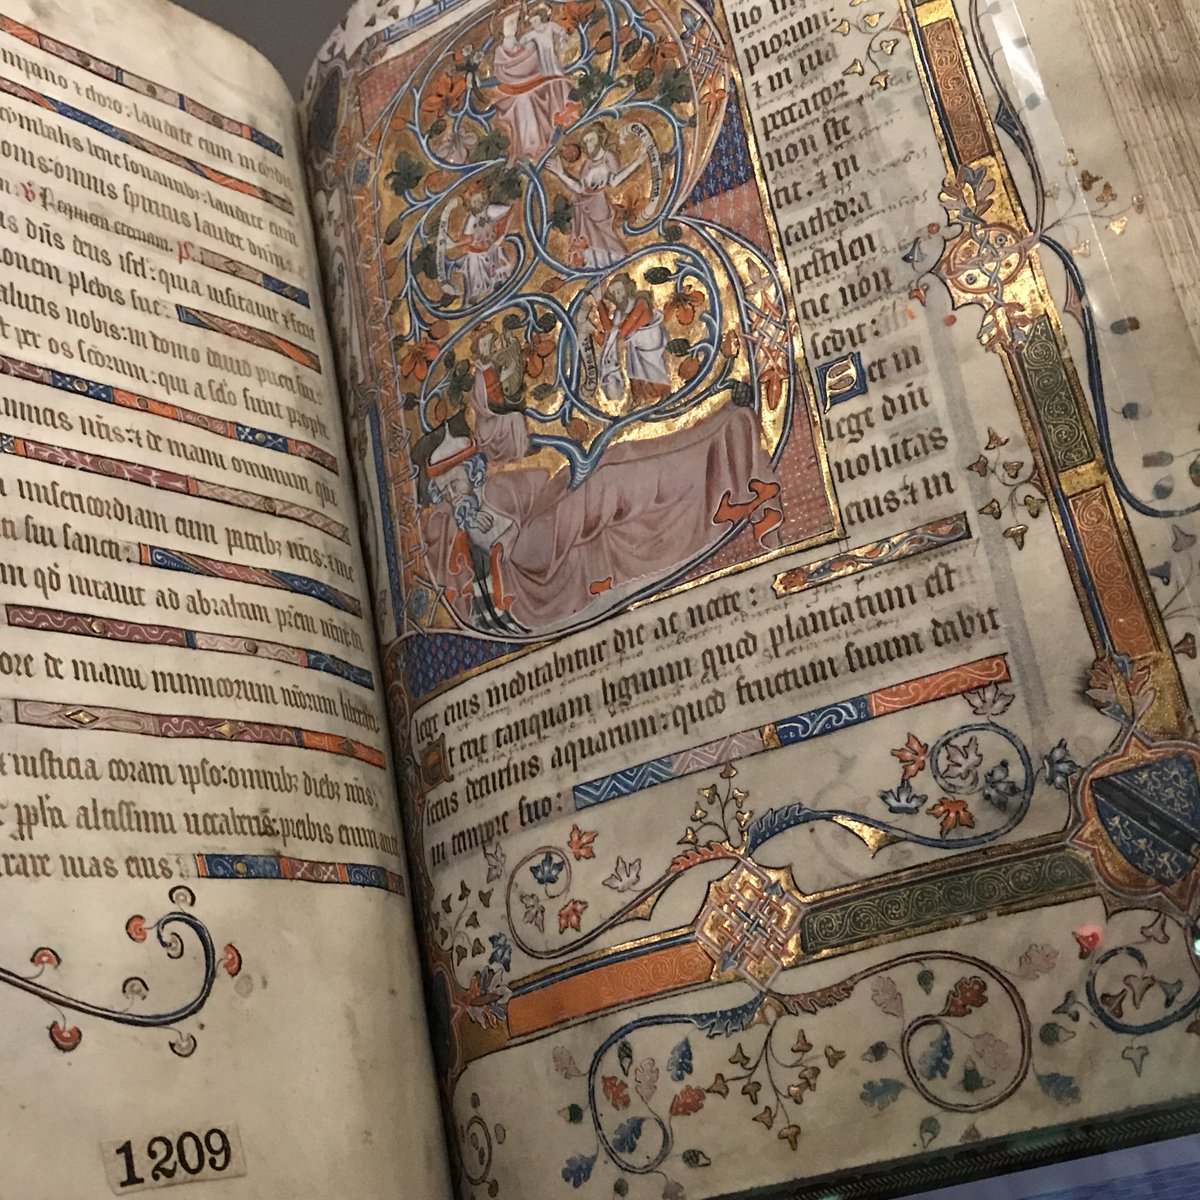 & choro: laudate eum in cordis
bene sonantibus: laudate eum
omnis spiritus laudet dnm:
Requiem eternam. ps.
dns deus isrl: quia uisitauit & fecit
plebis sue:
nobis: in domo dauid pueri sui:
os scorum: qui a sclo sunt prophe
nris: & de manu omnium qui
misericordiam cum patribz nris: & me
sui sancti:
qd iurauit ad abraham prem nrm:
de manu inimicorum nrorum liberati:
iusticia coram ipso: omnibz diebz nris:
altissimi uocaberis: preibis enim ante
uias eius:
1209
lio im
piorum:
& in uia
peccator
non ste
tit. & in
cathedra
pestilen
tie non
sedit:
Set in
lege dni
uoluntas
eius: & in
lege eius meditabitur die ac nocte:
Et erit tanquam lignum quod plantatum est
secus decursus aquarum: quod fructum suum dabit
in tempore suo: